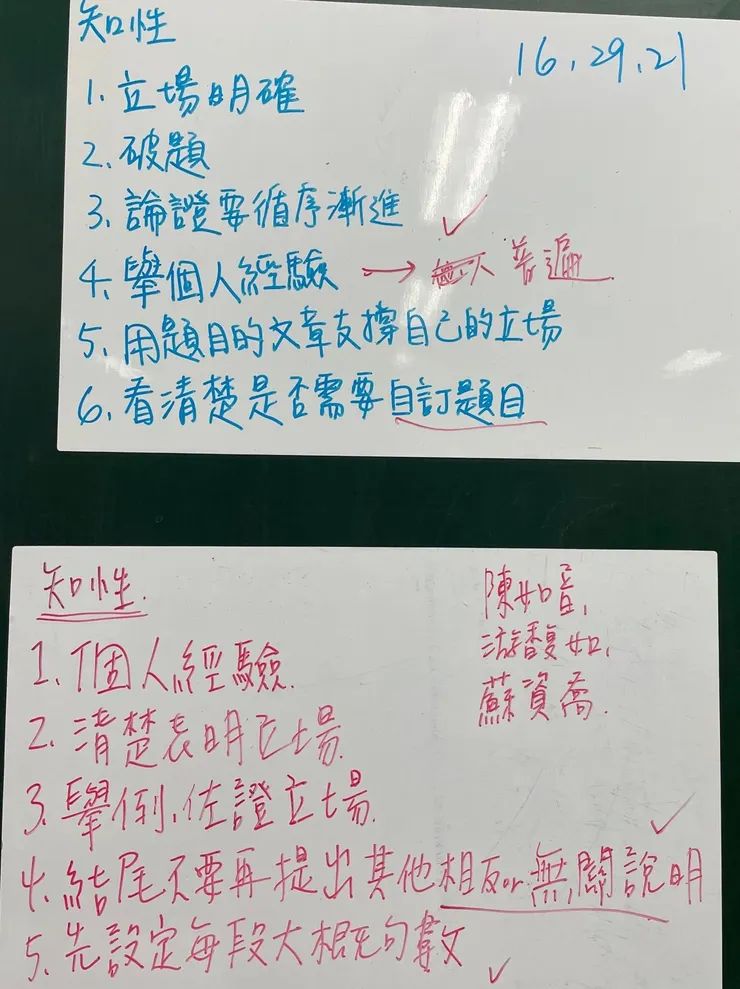 知性
16、29、21
1. 立場明確
2. 破題
3. 論證要循序漸進
4. 舉個人經驗 → 普遍
5. 用題目的文章支撐自己的立場
6. 看清楚是否需要自訂題目
知性.
陳如音、
游馥如、
蘇資喬.
1. 個人經驗.
2. 清楚表明立場.
3. 舉例、佐證立場.
4. 結尾不要再提出其他相反or無關說明
5. 先設定每段大概句數